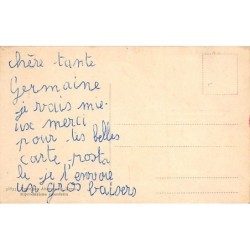 chère tante
Germaine
je vais mie
ux merci
pour tes belles
carte posta
le je t'envoie
un gros baisers